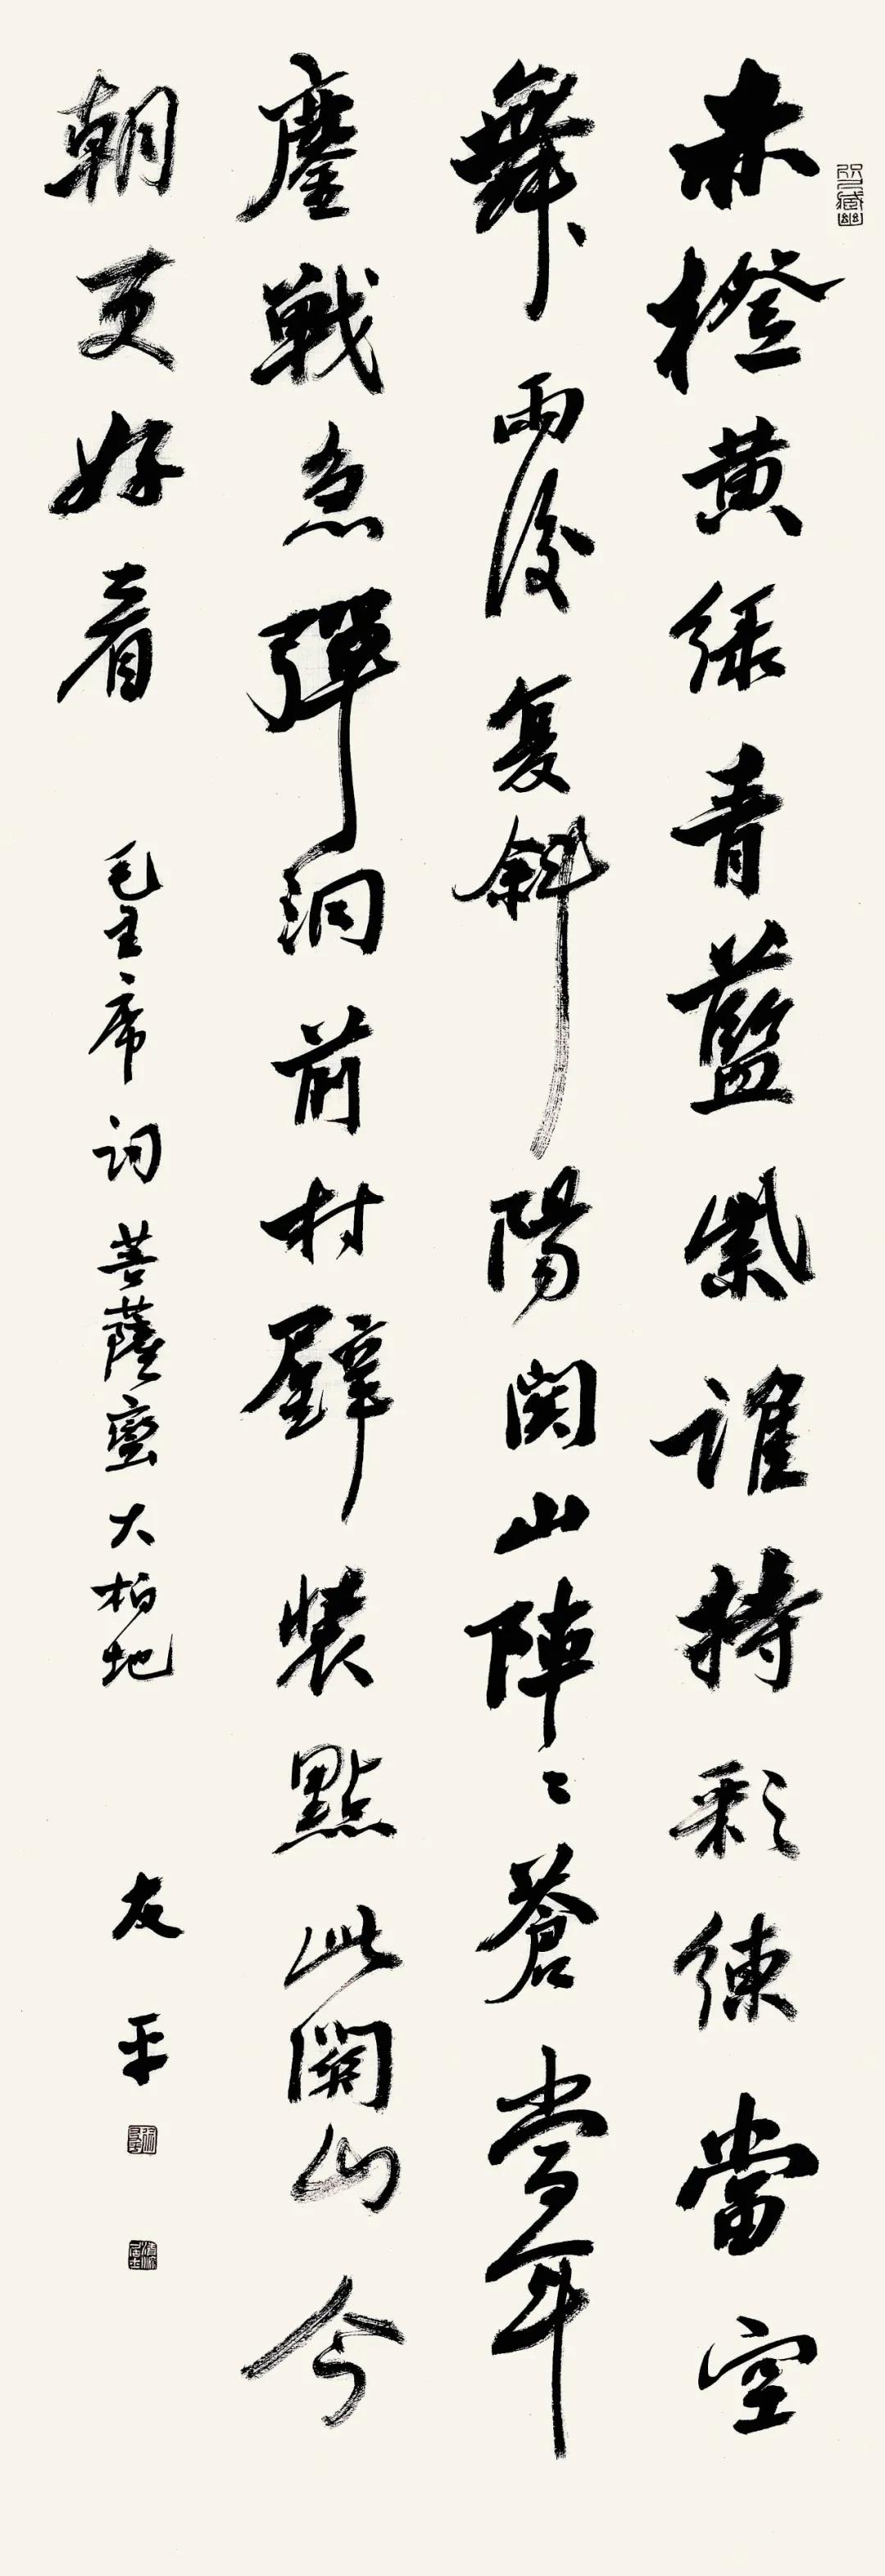 赤橙黄绿青藍紫誰持彩練當空
舞雨後复斜陽関山陣〻蒼當年
鏖戰急彈洞前村壁裝點此關山今
朝更好看
毛主席词菩薩蠻大柏地
友平